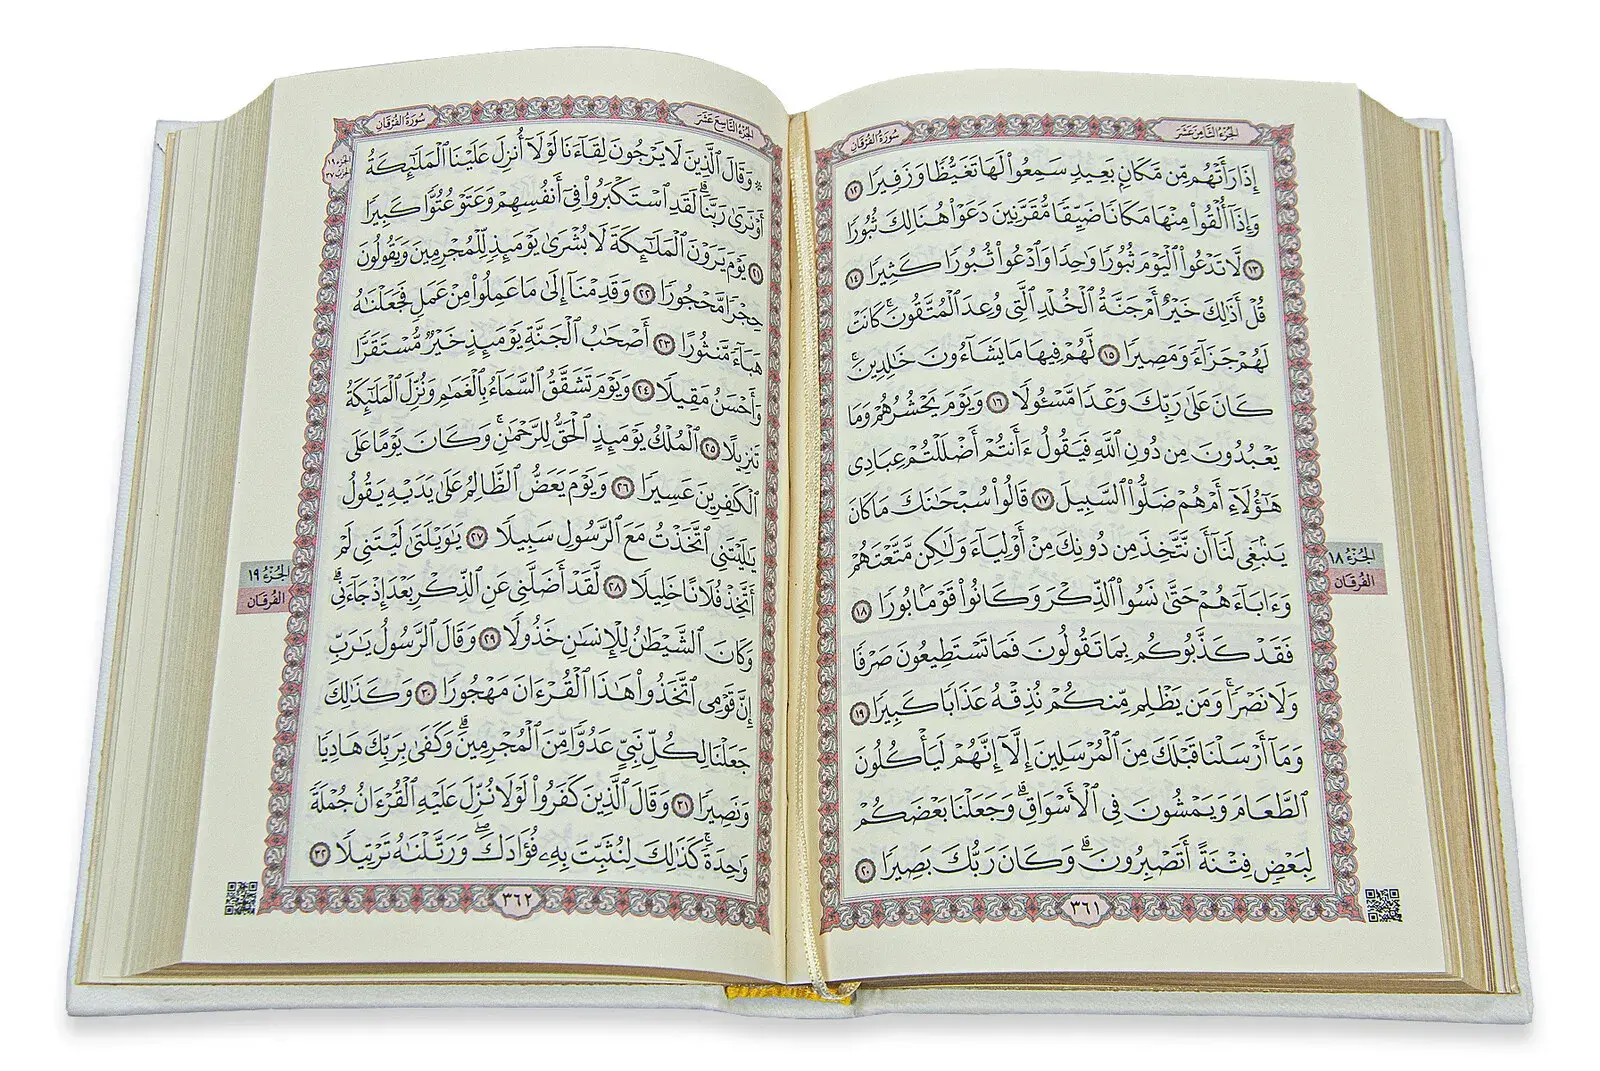 الجزء الثامن عشر
سورة الفرقان
إِذَا رَأَتْهُم مِّن مَّكَانٍ بَعِيدٍ سَمِعُوا۟ لَهَا تَغَيُّظًا وَزَفِيرًا ١٢
وَإِذَآ أُلْقُوا۟ مِنْهَا مَكَانًا ضَيِّقًا مُّقَرَّنِينَ دَعَوْا۟ هُنَالِكَ ثُبُورًا
١٣ لَّا تَدْعُوا۟ ٱلْيَوْمَ ثُبُورًا وَٰحِدًا وَٱدْعُوا۟ ثُبُورًا كَثِيرًا ١٤
قُلْ أَذَٰلِكَ خَيْرٌ أَمْ جَنَّةُ ٱلْخُلْدِ ٱلَّتِى وُعِدَ ٱلْمُتَّقُونَ ۚ كَانَتْ
لَهُمْ جَزَآءً وَمَصِيرًا ١٥ لَّهُمْ فِيهَا مَا يَشَآءُونَ خَٰلِدِينَ ۚ
كَانَ عَلَىٰ رَبِّكَ وَعْدًا مَّسْـُٔولًا ١٦ وَيَوْمَ يَحْشُرُهُمْ وَمَا
يَعْبُدُونَ مِن دُونِ ٱللَّهِ فَيَقُولُ ءَأَنتُمْ أَضْلَلْتُمْ عِبَادِى
هَٰٓؤُلَآءِ أَمْ هُمْ ضَلُّوا۟ ٱلسَّبِيلَ ١٧ قَالُوا۟ سُبْحَٰنَكَ مَا كَانَ
يَنۢبَغِى لَنَآ أَن نَّتَّخِذَ مِن دُونِكَ مِنْ أَوْلِيَآءَ وَلَٰكِن مَّتَّعْتَهُمْ
وَءَابَآءَهُمْ حَتَّىٰ نَسُوا۟ ٱلذِّكْرَ وَكَانُوا۟ قَوْمًۢا بُورًا ١٨
فَقَدْ كَذَّبُوكُم بِمَا تَقُولُونَ فَمَا تَسْتَطِيعُونَ صَرْفًا
وَلَا نَصْرًا ۚ وَمَن يَظْلِم مِّنكُمْ نُذِقْهُ عَذَابًا كَبِيرًا ١٩
وَمَآ أَرْسَلْنَا قَبْلَكَ مِنَ ٱلْمُرْسَلِينَ إِلَّآ إِنَّهُمْ لَيَأْكُلُونَ
ٱلطَّعَامَ وَيَمْشُونَ فِى ٱلْأَسْوَاقِ ۗ وَجَعَلْنَا بَعْضَكُمْ
لِبَعْضٍ فِتْنَةً أَتَصْبِرُونَ ۗ وَكَانَ رَبُّكَ بَصِيرًا ٢٠
الجزء ١٨
الفرقان
٣٦١
الجزء التاسع عشر
سورة الفرقان
الجزء ١٩
الحزب ٣٧
۞ وَقَالَ ٱلَّذِينَ لَا يَرْجُونَ لِقَآءَنَا لَوْلَآ أُنزِلَ عَلَيْنَا ٱلْمَلَٰٓئِكَةُ
أَوْ نَرَىٰ رَبَّنَا ۗ لَقَدِ ٱسْتَكْبَرُوا۟ فِىٓ أَنفُسِهِمْ وَعَتَوْ عُتُوًّا كَبِيرًا
٢١ يَوْمَ يَرَوْنَ ٱلْمَلَٰٓئِكَةَ لَا بُشْرَىٰ يَوْمَئِذٍ لِّلْمُجْرِمِينَ وَيَقُولُونَ
حِجْرًا مَّحْجُورًا ٢٢ وَقَدِمْنَآ إِلَىٰ مَا عَمِلُوا۟ مِنْ عَمَلٍ فَجَعَلْنَٰهُ
هَبَآءً مَّنثُورًا ٢٣ أَصْحَٰبُ ٱلْجَنَّةِ يَوْمَئِذٍ خَيْرٌ مُّسْتَقَرًّا
وَأَحْسَنُ مَقِيلًا ٢٤ وَيَوْمَ تَشَقَّقُ ٱلسَّمَآءُ بِٱلْغَمَٰمِ وَنُزِّلَ ٱلْمَلَٰٓئِكَةُ
تَنزِيلًا ٢٥ ٱلْمُلْكُ يَوْمَئِذٍ ٱلْحَقُّ لِلرَّحْمَٰنِ ۚ وَكَانَ يَوْمًا عَلَى
ٱلْكَٰفِرِينَ عَسِيرًا ٢٦ وَيَوْمَ يَعَضُّ ٱلظَّالِمُ عَلَىٰ يَدَيْهِ يَقُولُ
يَٰلَيْتَنِى ٱتَّخَذْتُ مَعَ ٱلرَّسُولِ سَبِيلًا ٢٧ يَٰوَيْلَتَىٰ لَيْتَنِى لَمْ
أَتَّخِذْ فُلَانًا خَلِيلًا ٢٨ لَّقَدْ أَضَلَّنِى عَنِ ٱلذِّكْرِ بَعْدَ إِذْ جَآءَنِى ۗ
وَكَانَ ٱلشَّيْطَٰنُ لِلْإِنسَٰنِ خَذُولًا ٢٩ وَقَالَ ٱلرَّسُولُ يَٰرَبِّ
إِنَّ قَوْمِى ٱتَّخَذُوا۟ هَٰذَا ٱلْقُرْءَانَ مَهْجُورًا ٣٠ وَكَذَٰلِكَ
جَعَلْنَا لِكُلِّ نَبِىٍّ عَدُوًّا مِّنَ ٱلْمُجْرِمِينَ ۗ وَكَفَىٰ بِرَبِّكَ هَادِيًا
وَنَصِيرًا ٣١ وَقَالَ ٱلَّذِينَ كَفَرُوا۟ لَوْلَا نُزِّلَ عَلَيْهِ ٱلْقُرْءَانُ جُمْلَةً
وَٰحِدَةً ۚ كَذَٰلِكَ لِنُثَبِّتَ بِهِۦ فُؤَادَكَ ۖ وَرَتَّلْنَٰهُ تَرْتِيلًا ٣٢
الجزء ١٩
الفرقان
٣٦٢